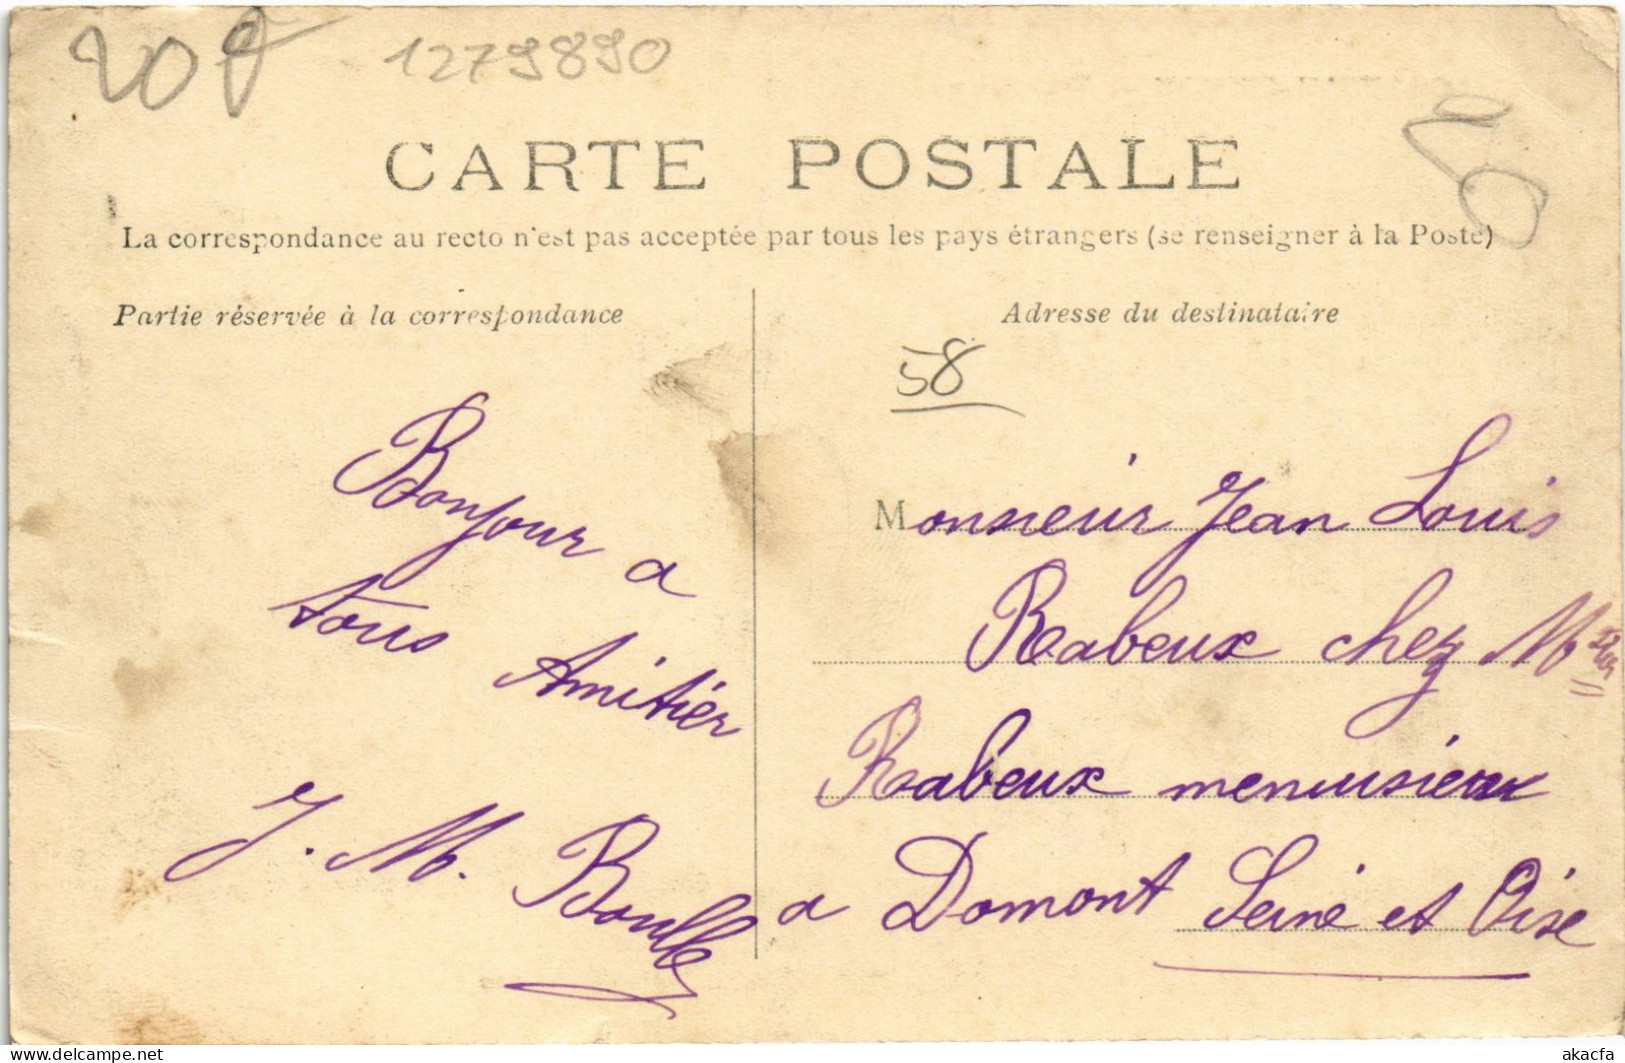 1279890
CARTE POSTALE
La correspondance au recto n'est pas acceptée par tous les pays étrangers (se renseigner à la Poste)
Partie réservée à la correspondance
Bonjour a
tous Amitiér
J. M. Boulle
Adresse du destinataire
58
Monsieur Jean Louis
Rabeux chez M
Rabeux menuisieux
a Domont Seine et Oise
delcampe.net
akacfa